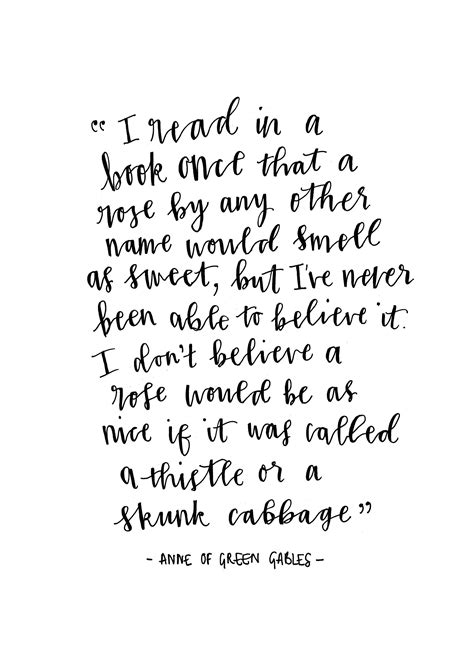 “ I read in a
book once that a
rose by any other
name would smell
as sweet, but I've never
been able to believe it.
I don't believe a
rose would be as
nice if it was called
a thistle or a
skunk cabbage ”
- ANNE OF GREEN GABLES -